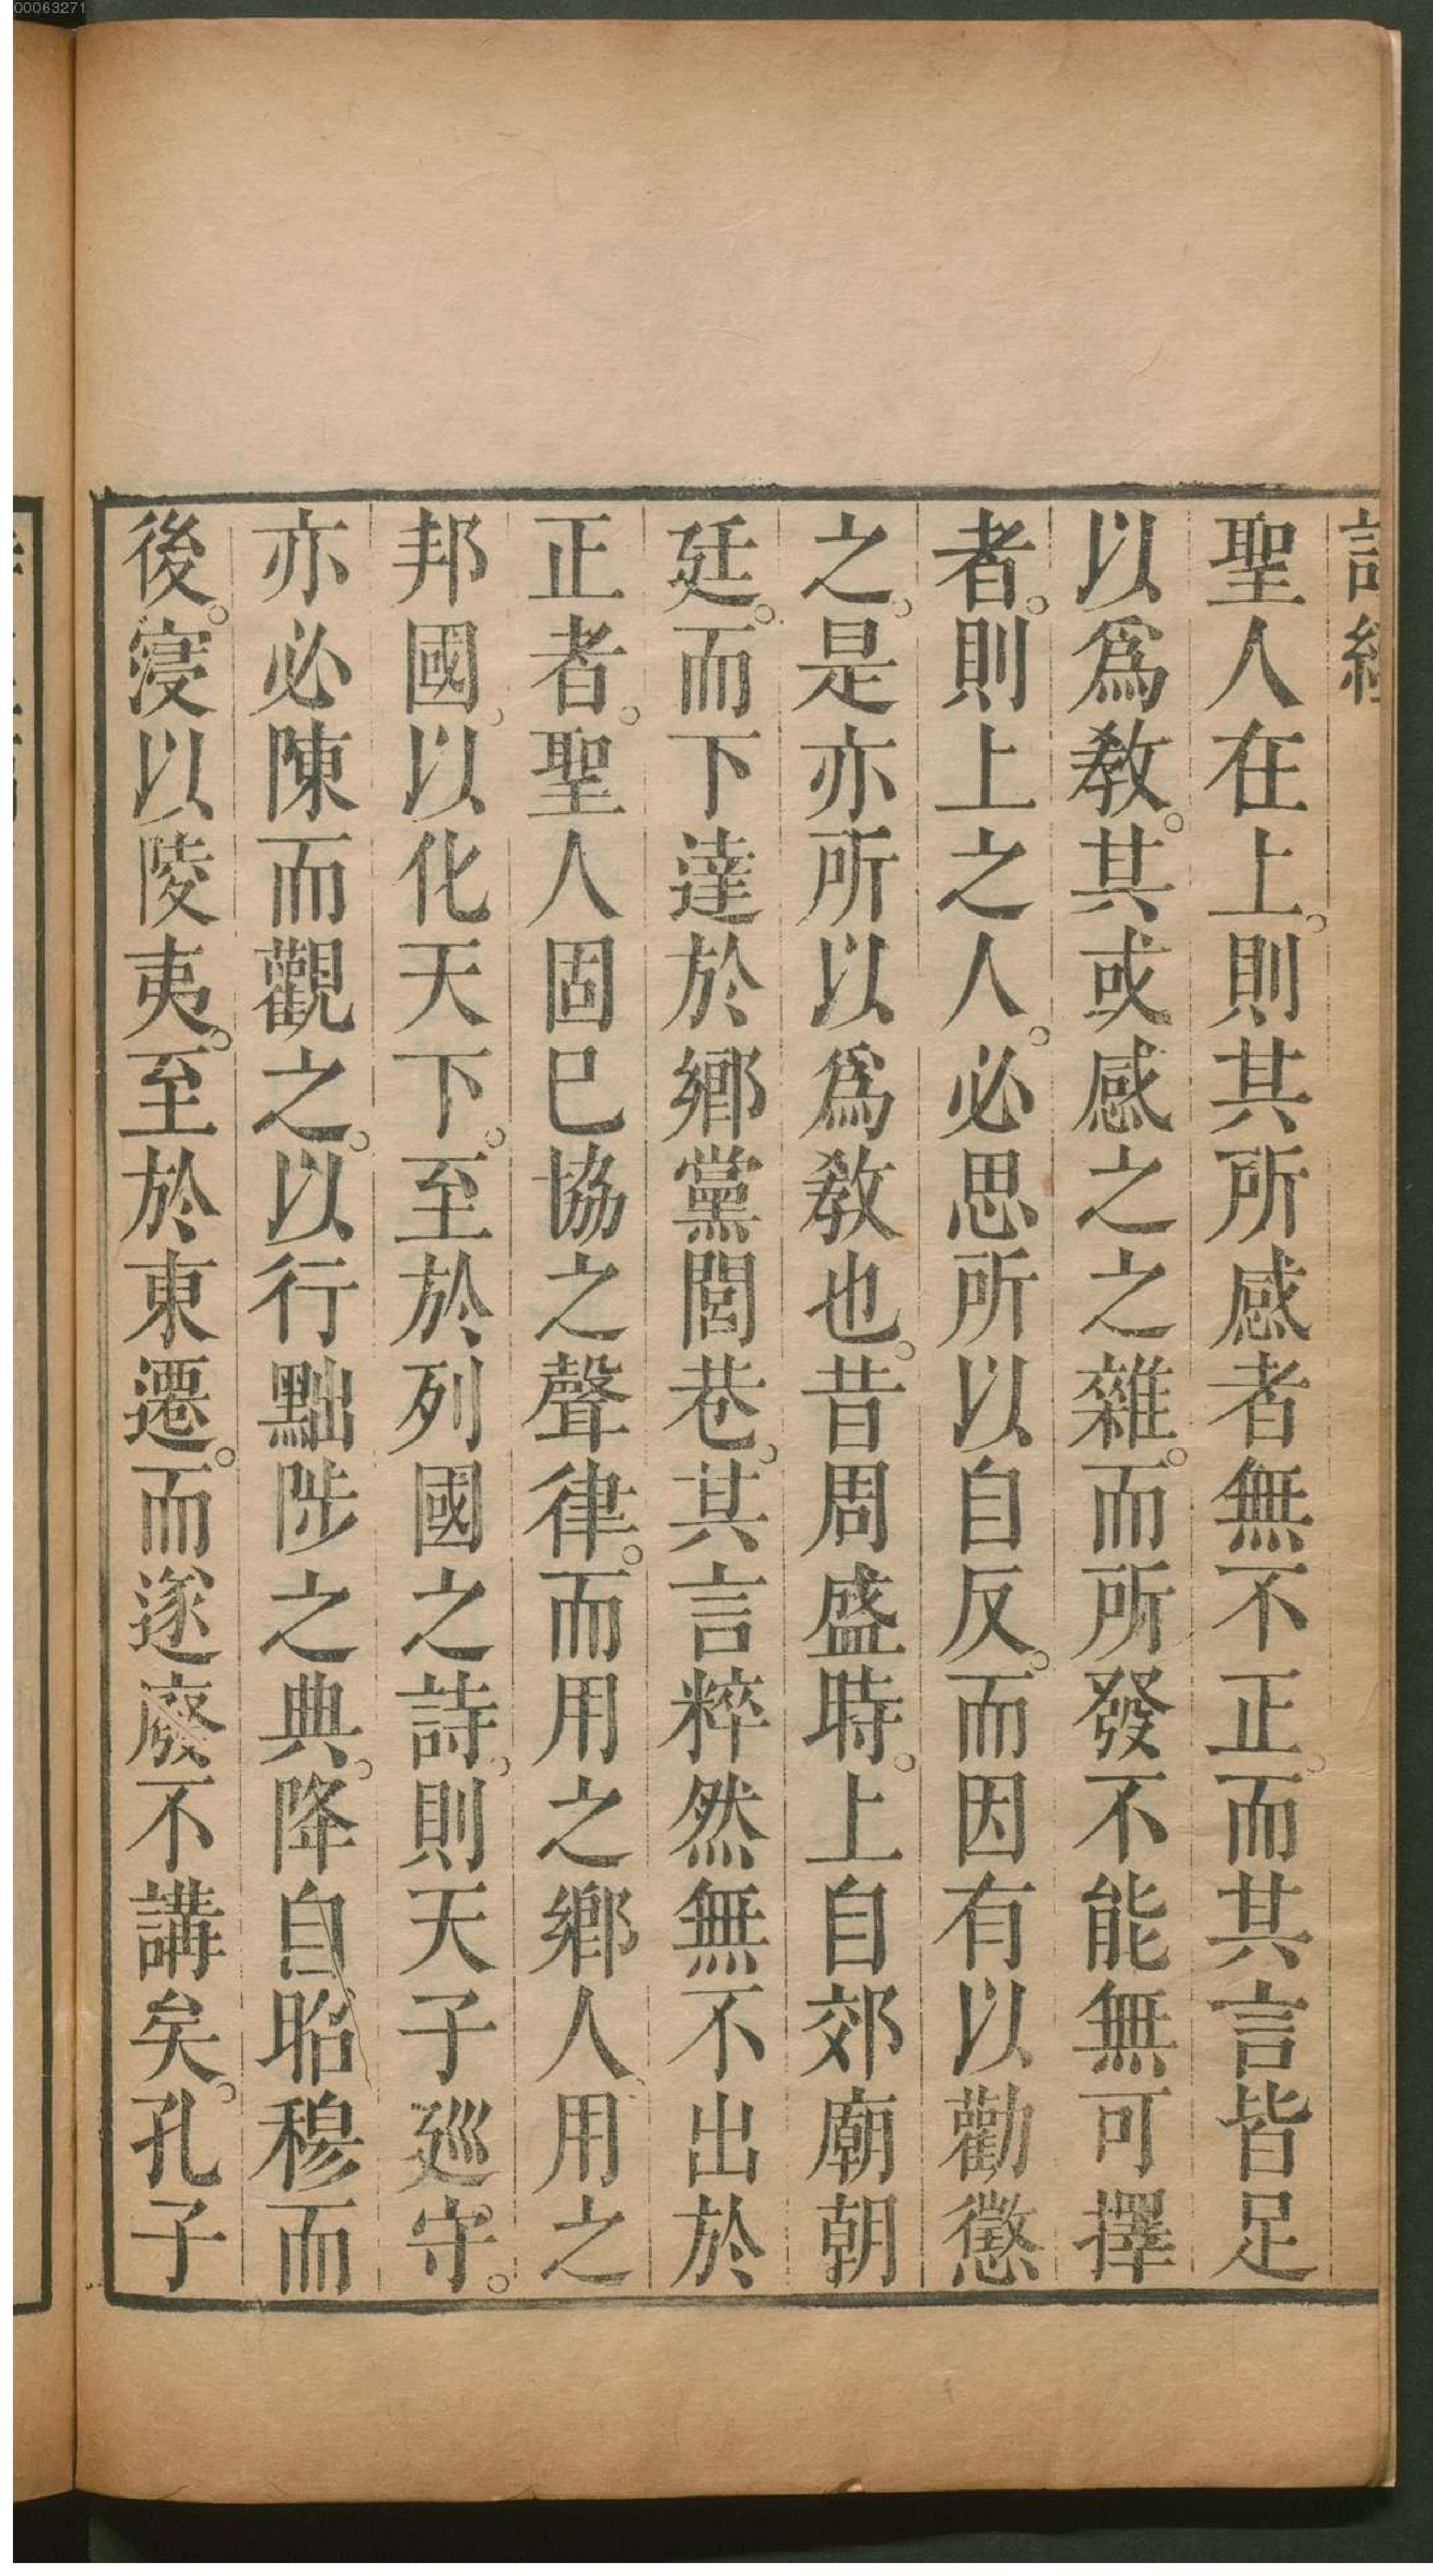 00063271
聖人在上。則其所感者無不正。而其言皆足
以爲敎。其或感之之雜。而所發不能無可擇
者。則上之人。必思所以自反。而因有以勸懲
之。是亦所以爲敎也。昔周盛時。上自郊廟朝
廷。而下達於鄉黨閭巷。其言粹然無不出於
正者。聖人固已協之聲律。而用之鄉人、用之
邦國。以化天下。至於列國之詩。則天子廵守。
亦必陳而觀之。以行黜陟之典。降自昭穆而
後。寖以陵夷。至於東遷。而遂廢不講矣。孔子